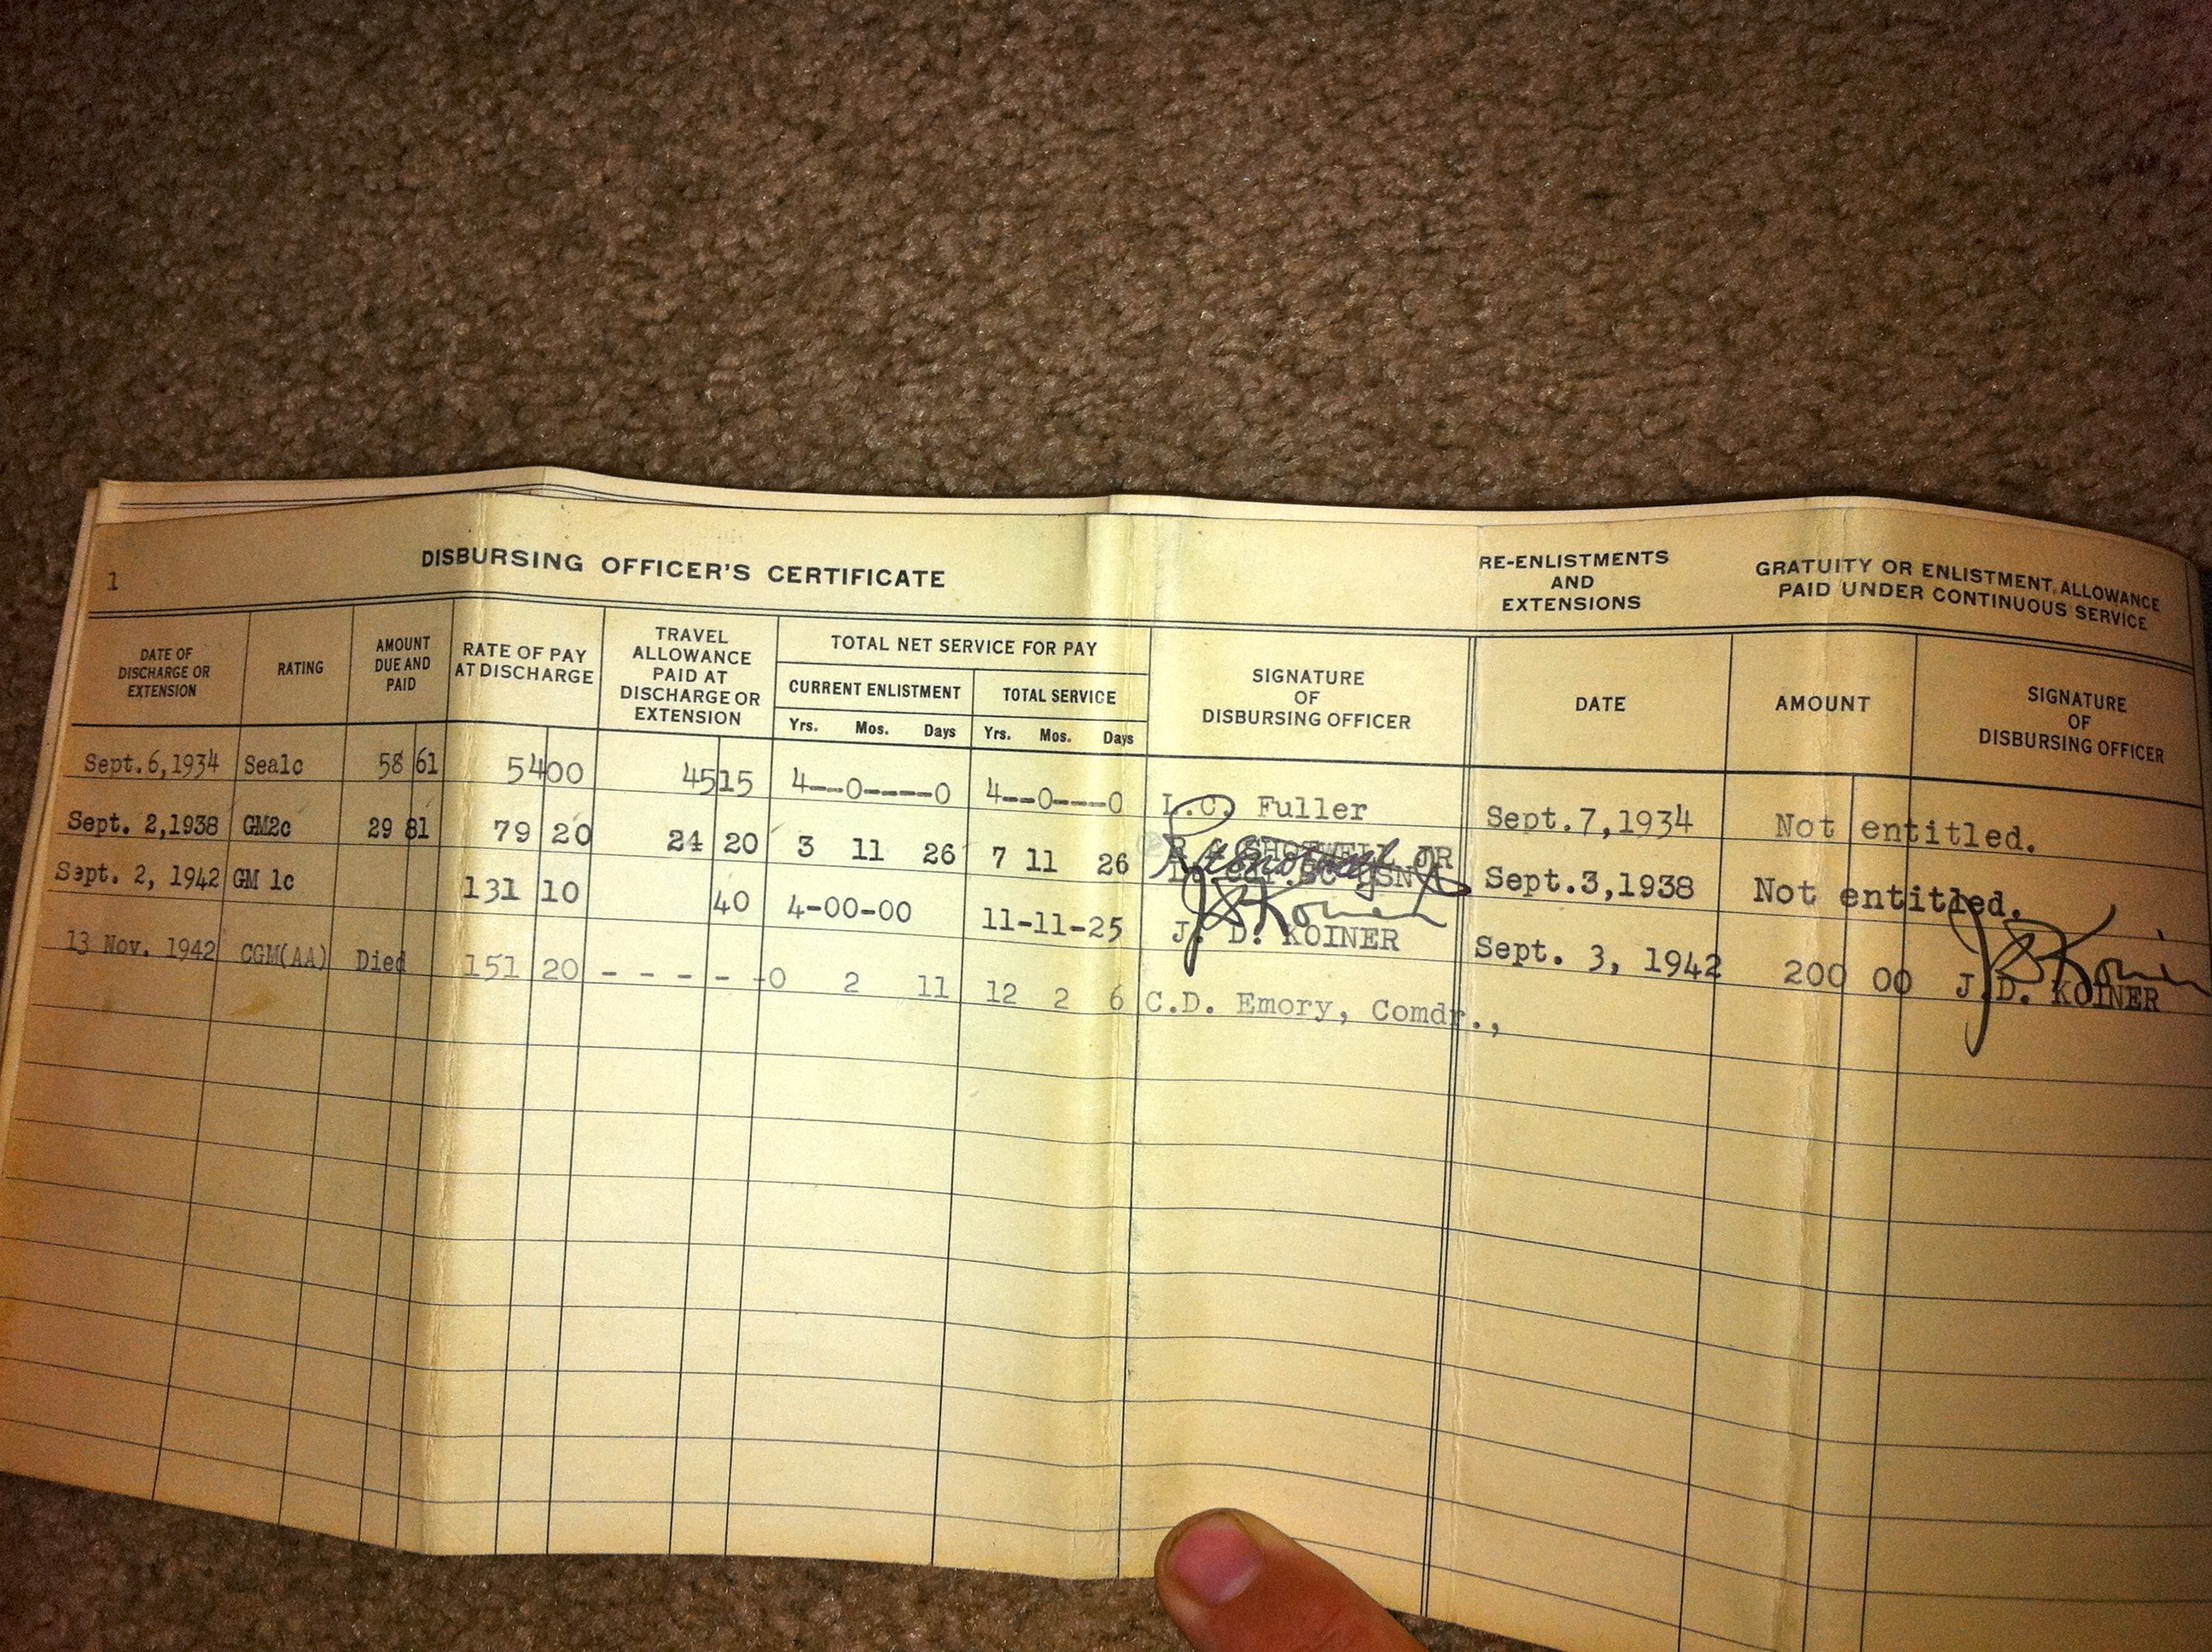 1
DISBURSING OFFICER'S CERTIFICATE
RE-ENLISTMENTS
AND
EXTENSIONS
GRATUITY OR ENLISTMENT ALLOWANCE
PAID UNDER CONTINUOUS SERVICE
DATE OF
DISCHARGE OR
EXTENSION
RATING
AMOUNT
DUE AND
PAID
RATE OF PAY
AT DISCHARGE
TRAVEL
ALLOWANCE
PAID AT
DISCHARGE OR
EXTENSION
TOTAL NET SERVICE FOR PAY
CURRENT ENLISTMENT
TOTAL SERVICE
Yrs. Mos. Days
Yrs. Mos. Days
SIGNATURE
OF
DISBURSING OFFICER
DATE
AMOUNT
SIGNATURE
OF
DISBURSING OFFICER
Sept.6,1934 Sea1c 58 61 54 00 45 15 4--0-----0 4--0----0 L.C. Fuller Sept.7,1934 Not entitled.
Sept. 2,1938 GM2c 29 81 79 20 24 20 3 11 26 7 11 26 SHOTWELL JR Sept.3,1938 Not entitled.
Sept. 2, 1942 GM 1c 131 10 40 4-00-00 11-11-25 J. D. KOINER Sept. 3, 1942 200 00 J. D. KOINER
13 Nov. 1942 CGM(AA) Died 151 20 - - - - -0 2 11 12 2 6 C.D. Emory, Comdr.,